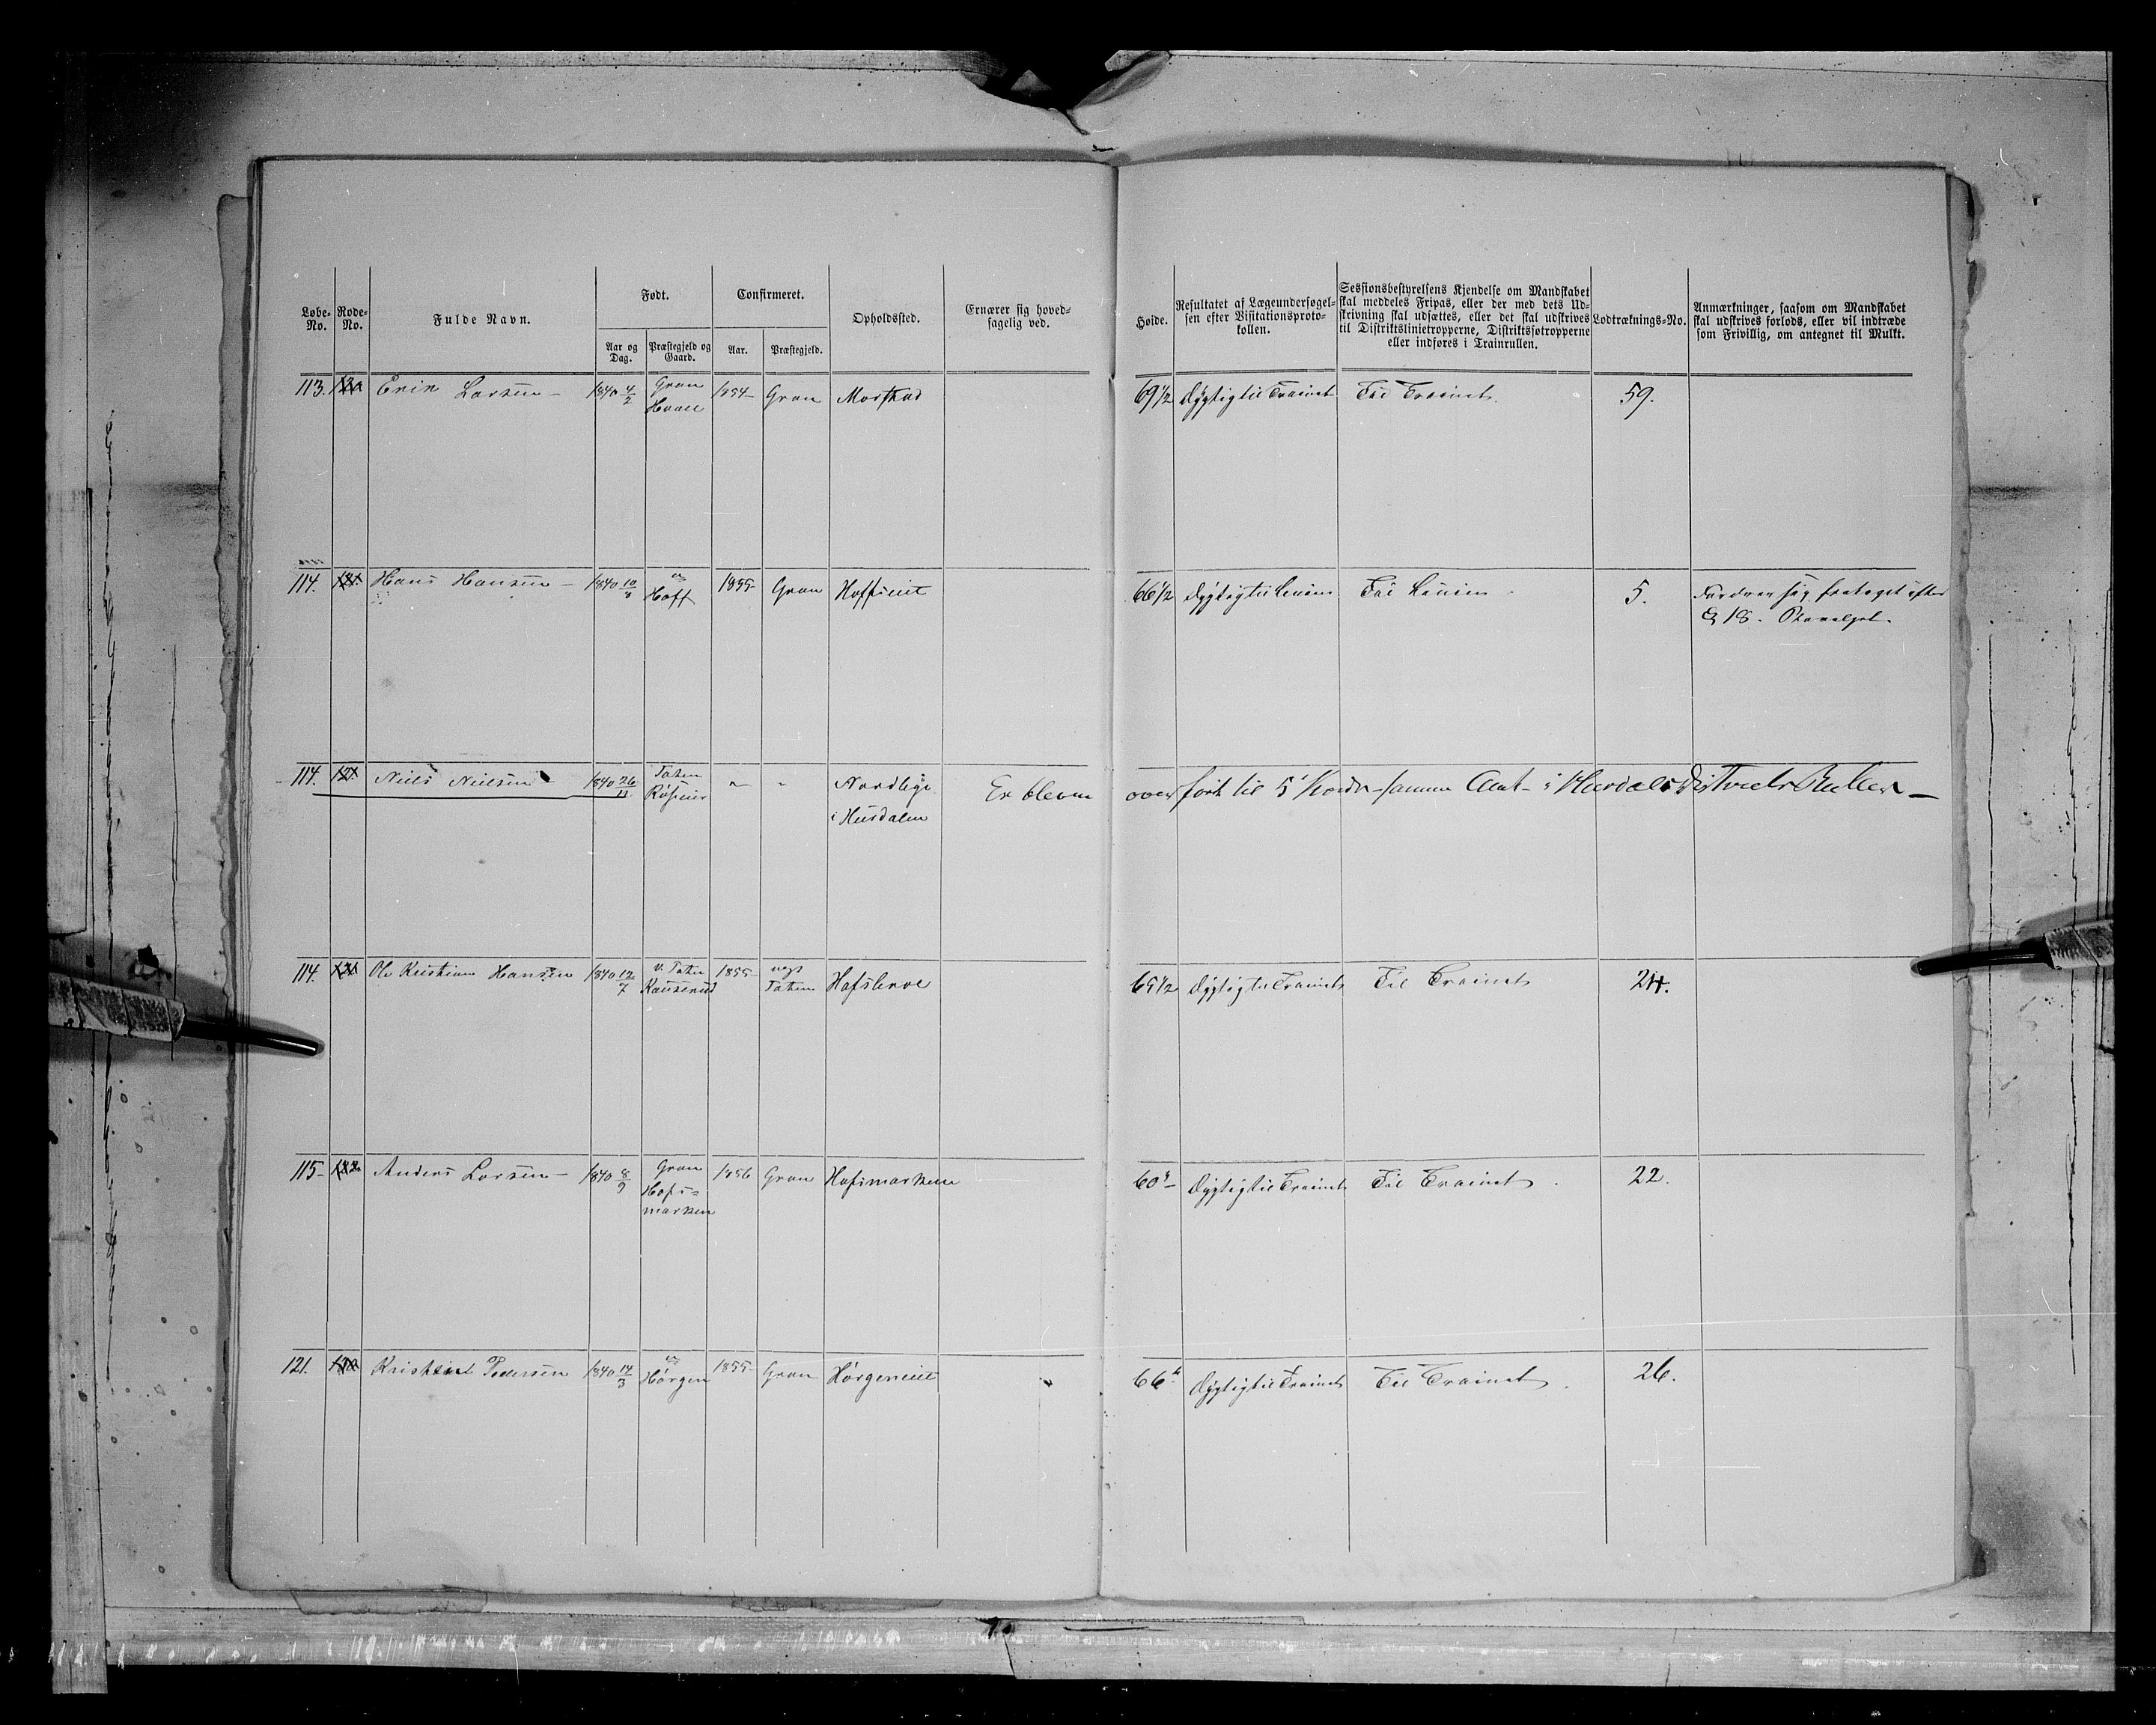 Løbe-No.
Rode-No.
Fulde Navn.
Født.
Aar og Dag.
Præstegjeld og Gaard.
Confirmeret.
Aar.
Præstegjeld.
Opholdssted.
Ernærer sig hoved-
sagelig ved.
Høide.
Resultatet af Lægeundersøgel-
sen efter Visitationsproto-
kollen.
Sessionsbestyrelsens Kjendelse om Mandskabet
skal meddeles Fripas, eller der med dets Ud-
skrivning skal udsættes, eller det skal udskrives
til Distriktslinietropperne, Distriktsføtropperne
eller indføres i Trainrullen.
Lodtræknings-No.
Anmærkninger, saasom om Mandskabet
skal udskrives forlods, eller vil indtræde
som Frivillig, om antegnet til Mulkt.
113. Erik Larsen 1840 4/2 Gran 1854 Gran Morstad 69 1/2 Dygtig til Trainet Til Trainet. 59.
Hvall
114. Hans Hansen 1840 10/8 Hoff 1855 Gran Hoffseiet 66 1/2 Dygtig til Linien Til Linien 5.
§ 18.
114. 121. Niels Nielsen 1840 26/11 Toten " " Nordlige Er bleven overført til 5 samme Amt i Hurdals Distrikts Ruller
i Hurdalen
114. Ole Kristian Hansen 1840 12/7 v. Toten 1855 Toten 65 1/2 Dygtig til Trainet Til Trainet 24.
115 Anders Larsen 1840 8/9 Gran 1856 Gran Hofsmarken 60 Dygtig til Trainet Til Trainet. 22.
Hofs=
marken
121. Kristian Pedersen 1840 14/3 Hørgen 1855 Gran Hørgeneiet 66 Dygtig til Trainet Til Trainet. 26.